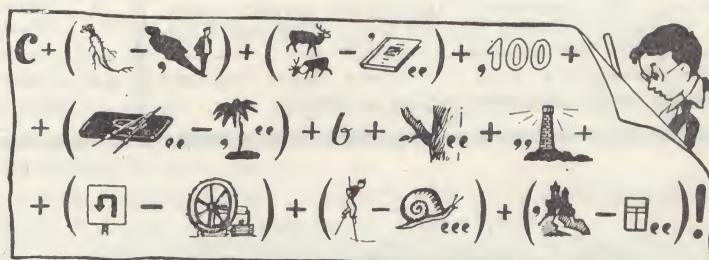 С + ( - , ) + ( - ‘ ,, ) + ,100 +
+ ( ,, - , ,, ) + в + ,, + ,, +
+ ( - ) + ( - ,,, ) + ( , - ,, ) !